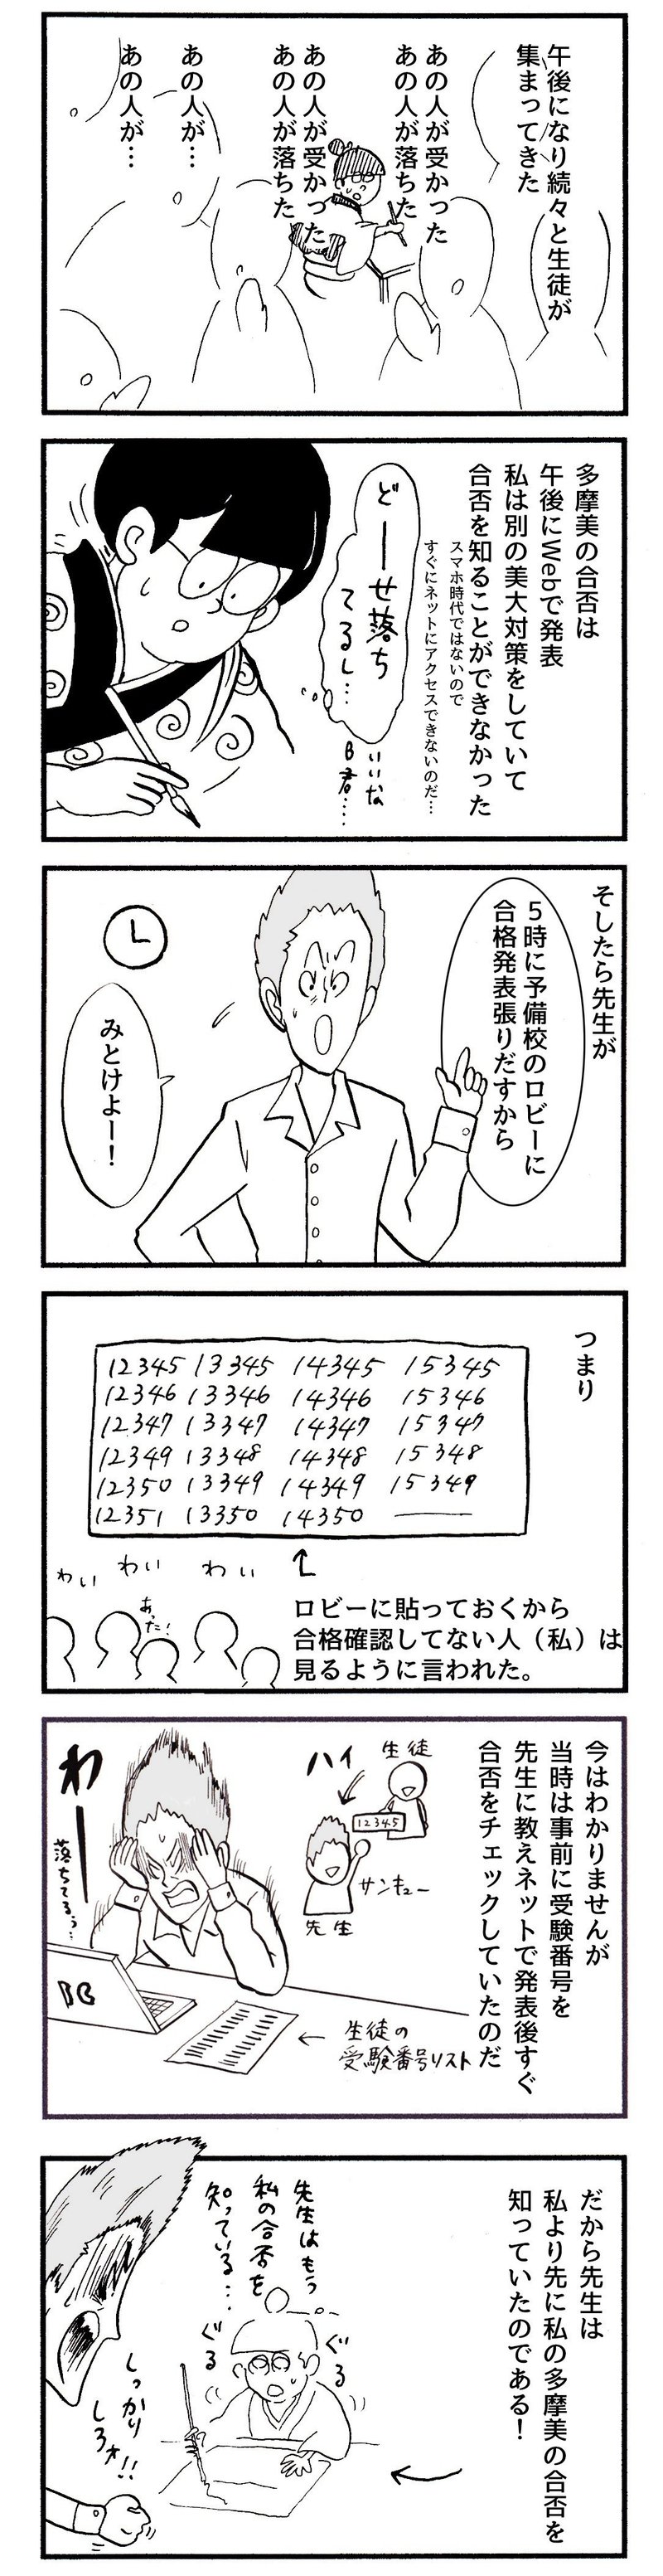 午後になり続々と生徒が
集まってきた
あの人が受かった
あの人が落ちた
あの人が受かった
あの人が落ちた
あの人が…
あの人が…
多摩美の合否は
午後にWebで発表
私は別の美大対策をしていて
合否を知ることができなかった
スマホ時代ではないので
すぐにネットにアクセスできないのだ…
どーせ落ち
てるし…
いいな
B君……
そしたら先生が
5時に予備校のロビーに
合格発表張りだすから
みとけよー！
つまり
12345 13345 14345 15345
12346 13346 14346 15346
12347 13347 14347 15347
12349 13348 14348 15348
12350 13349 14349 15349
12351 13350 14350
わい わい わい
あった!
ロビーに貼っておくから
合格確認してない人（私）は
見るように言われた。
今はわかりませんが
当時は事前に受験番号を
先生に教えネットで発表後すぐ
合否をチェックしていたのだ
生徒
ハイ
12345
サンキュー
先生
わー
落ちてるぅ…
生徒の
受験番号リスト
だから先生は
私より先に私の多摩美の合否を
知っていたのである！
先生はもう
私の合否を
知っている…
ぐる
ぐる
しっかり
しろォ!!